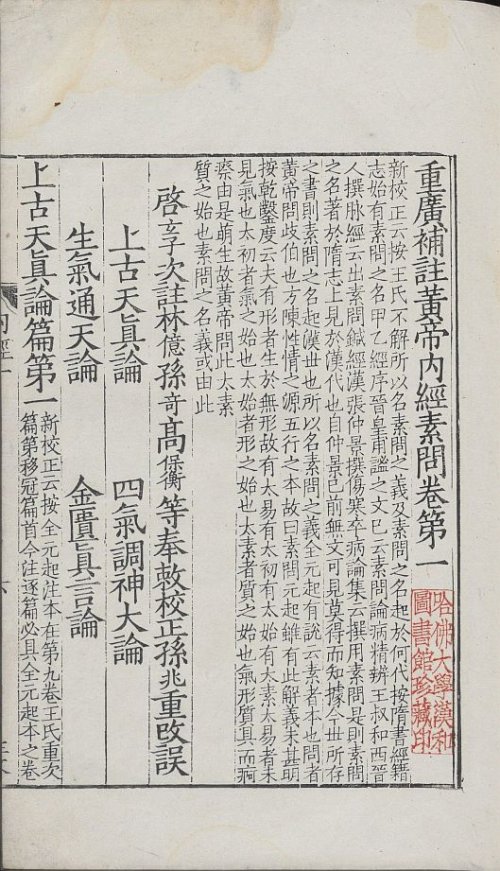 重廣補註黃帝內經素問卷第一
哈佛大學漢和
圖書館珍藏印
新校正云按王氏不解所以名素問之義及素問之名起於何代按隋書經籍
志始有素問之名甲乙經序晉皇甫謐之文已云素問論病精辨王叔和西晉
人撰脉經云出素問鍼經漢張仲景撰傷寒卒病論集云撰用素問是則素問
之名著於隋志上見於漢代也自仲景已前無文可見莫得而知據今世所存
之書則素問之名起漢世也所以名素問之義全元起有說云素者本也問者
黃帝問歧伯也方陳性情之源五行之本故曰素問元起雖有此解義未甚明
按乾鑿度云夫有形者生於無形故有太易有太初有太始有太素太易者未
見氣也太初者氣之始也太始者形之始也太素者質之始也氣形質具而痾
瘵由是萌生故黃帝問此太素
質之始也素問之名義或由此
啓玄子次註林億孫奇高保衡等奉敕校正孫兆重改誤
上古天眞論 四氣調神大論
生氣通天論 金匱眞言論
上古天眞論篇第一
新校正云按全元起注本在第九卷王氏重次
篇第移冠篇首今注逐篇必具全元起本之卷